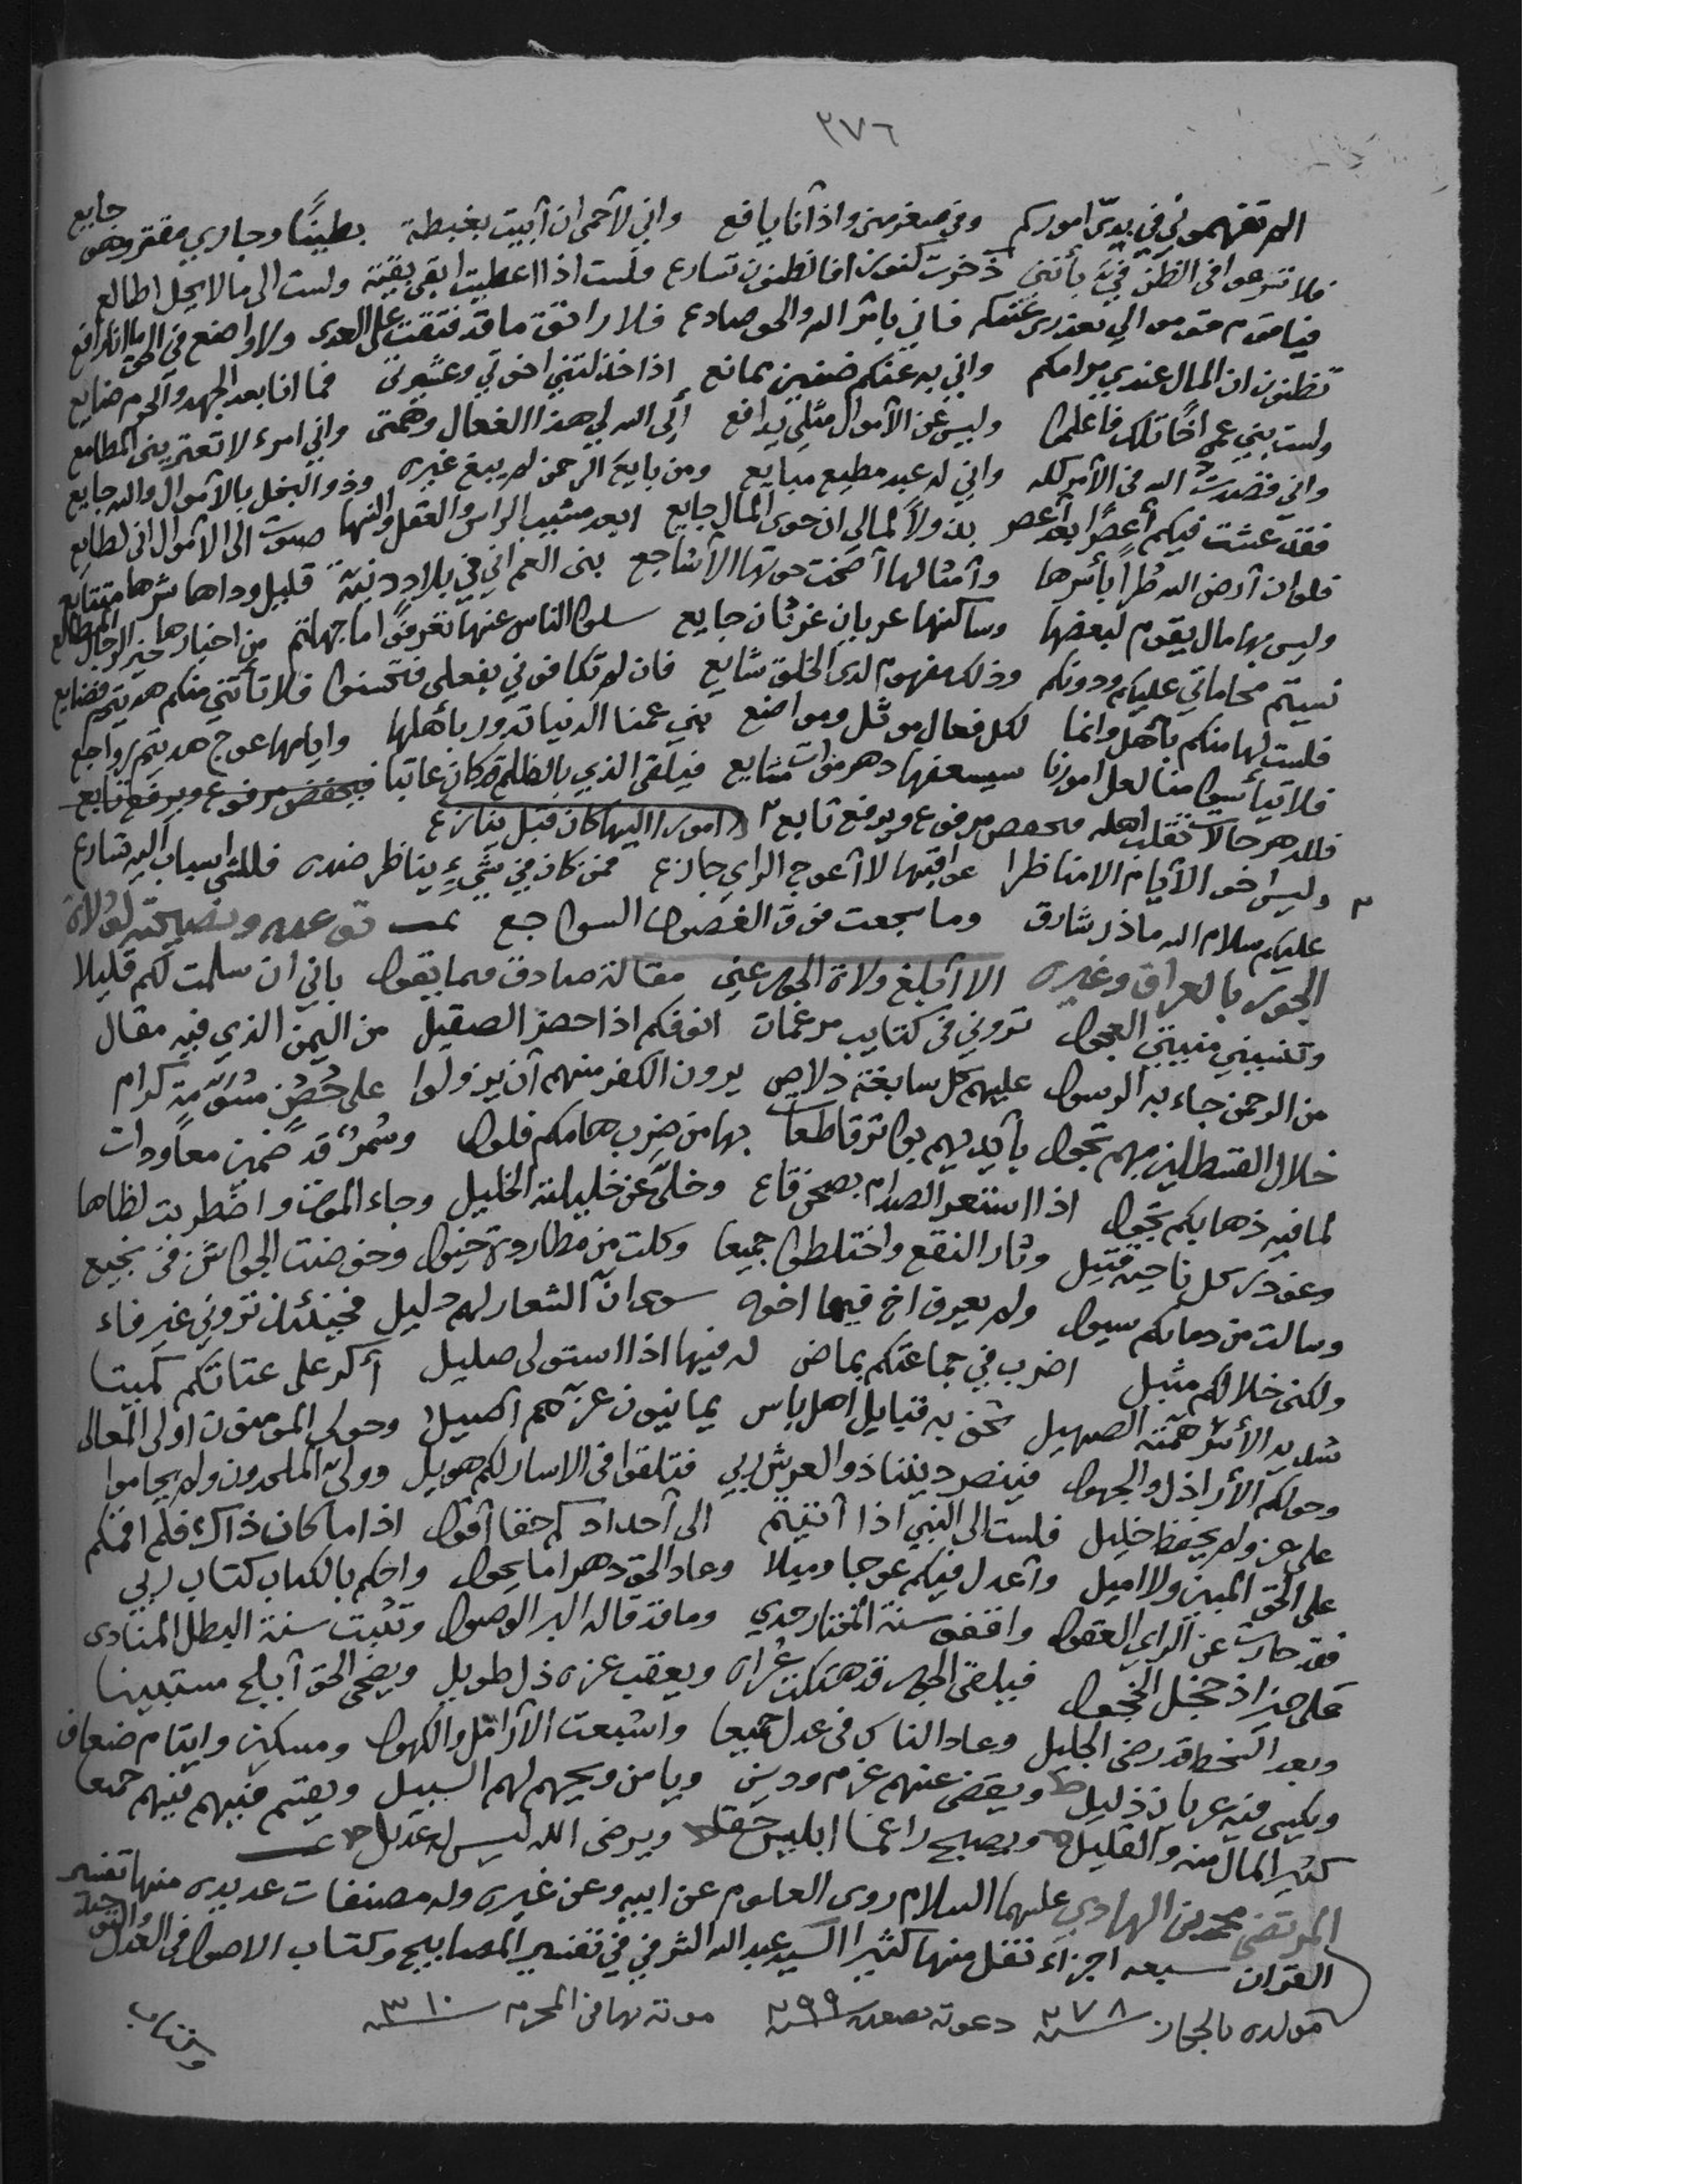 ٣٧٦
الم تفهموني في بديّ اموركم وفي صغر مني واذ أنا يافع واني لأحمى ان أبيت بغبطة بطينًا وجاري مقتر وهو جايع
فلا تسرعوا في الظن فيّ بأنني ذخرت كنوزا فالظنون تسارع فلست اذا اعطيت ابقي بقية ولست الى ما لا يحل اطالع
فيا قوم قوموا لي بعذري عندكم فاني بأمر الله والحق صادع فلا راتق ما قد فتقت على العدى ولا واضع في الحق ما انا رافع
تظنون ان المال عندي مرامكم واني به عنكم ضنين مانع اذا خذلتني اخوتي وعشيرتي فما انا بعد الجهد والحزم ضايع
ولست بني عمي اخا تلك فاعلموا وليس عن الأموال مثلي يدافع أبى الله لي هذا الفعال وهمتي واني امرء لا تعتريني المطامع
واني قصدت الله في الأمر كله واني له عبد مطيع مبايع ومن بايع الرحمن لم يبغ غيره وذو البخل بالأموال والله جايع
فقد عشت فيكم أعصرًا بعد أعصر بذولاً لمالي ان حوى المال جايع ابعد مشيب الراس والعقل والنها صبوت الى الأموال اني لطالع
فلو ان أرض الله طراً بأسرها وأمثالها أضحت حوتها الأشاجع بني العم اني في بلاد دنية قليل وداها شرها متتابع
وليس بها مال يقوم لبعضها وساكنها عريان غرثان جايع سلوا الناس عنها تعرفوا ما جهلتم من اخبارها خير الرجال المطالع
نسيتم محاماتي عليكم ودونكم وذلك مفهوم لدى الخلق شايع فان لم تكافوني بفعلي فتحسنوا فلا تأتني منكم هديتم فضايع
فلست لها منكم بأهل وانما لكل فعال موثل ومواضع بني عمنا الدنيا تدور بأهلها وايامها عوج هديتم رواجع
فلا تيأسوا منا لعل امورنا سيسعفها دهر موات متابع فيلقى الذي بالظلم قد كان عاتبا فيخفض مرفوع ويرفع تابع
فللدهر حالات تقلب اهله فيخفض مرفوع ويرفع تابع امورا اليها كان قبل ينازع
وليس اخو الأيام الا مناظرا عواقبها لا أعوج الراي جازع فمن كان في شيء يناظر ضده فللشي اسباب اليه تسارع
عليكم سلام الله ما ذر شارق وما سجعت فوق الغصون السواجع تمت توعده ونصيحته لولاة
الجور بالعراق وغيره الا أبلغ ولاة الجور عني مقالة صادق فيما يقول باني ان سلمت لكم قليلا
وتنسيني منيتي العجول تروني في كتايب مرغمات انوفكم اذا حضر الصقيل من اليمن الذي فيه مقال
من الرحمن جاء به الرسول عليهم كل سابغة دلاص يرون الكفر منهم أن يزولوا على حصن مسومة كرام
خلال القسطلين بهم تجول بأيديهم بواتر قاطعات بها من ضرب هامكم فلول وسمر قد ضمين معاودات
لما فيه ذهابكم تجول اذا استعر الصدام بصحن قاع وخلى عن خليلته الخليل وجاء الموت واضطربت لظاها
وغودر كل ناحية قتيل وثار النقع واختلطوا جميعا وكلت من مطاردة خيول وخوضت الجواشن في نجيع
وسالت من دمائكم سيول ولم يعرف اخ فيها اخوه سوى انّ الشعار لهم دليل فحينئذ تروني غير فاء
ولكني خلالكم مثيل اضرب في جماعتكم بماض له فيها اذا استولى صليل أكر على عتاتكم كميتا
شديد الأسر همته الصهيل تحف به قبايل اهل باس يمانيون عزهم اصيل وحولي المومنون اولي المعالي
وحولكم الأراذل والجهول فينصر ديننا ذو العرش ربي فتلقوا في الاسار لكم هويل وولى الملحدون ولم يحاموا
على عز ولم يحفظ خليل فلست الى النبي اذا أنتيتم الى أحداد كم حقا أقول اذا ما كان ذاك فلم اقمكم
على الحق المبين ولا اميل وأعدل فيكم عوجا وميلا وعاد الحق دهرا ما يحول واحكم بالكتاب كتاب ربي
فقد حارت عن الراي العقول واقفو سنة المختار جدي وما قد قاله البر الوصول وتثبت سنة البطل المنادى
على خير اذ خجل الخجول فيلفى الجور قد هتكت عراه ويعقب عزه ذل طويل ويضحى الحق أبلج مستبينا
وبعد السخط قد رضي الجليل وعاد الناس في عدل جميعا واشبعت الأرامل والكهول ومسكين وايتام ضعاف
ويكسى فيه عريان ذليل ويقضى عنهم غرم ودين ويامن ويحيهم لهم السبيل ويقسم فيهم فيهم جميعا
كثير المال منه والقليل ويصبح راغما ابليس حقا ويرضى الله ليس له عديل تمت
المرتضى محمد بن الهادي عليهما السلام روى العلوم عن ابيه وعن غيره وله مصنفات عديده منها تفسير
القرآن سبعه اجزاء نقل منها كثيرا السيد عبد الله الشرفي في تفسير المصابيح وكتاب الاصول في العدل والتوحيد
مولده بالحجاز سنة ٢٧٨ دعوته بصعده سنة ٢٩٩ موته بها في المحرم سنة ٣١٠
وكتاب